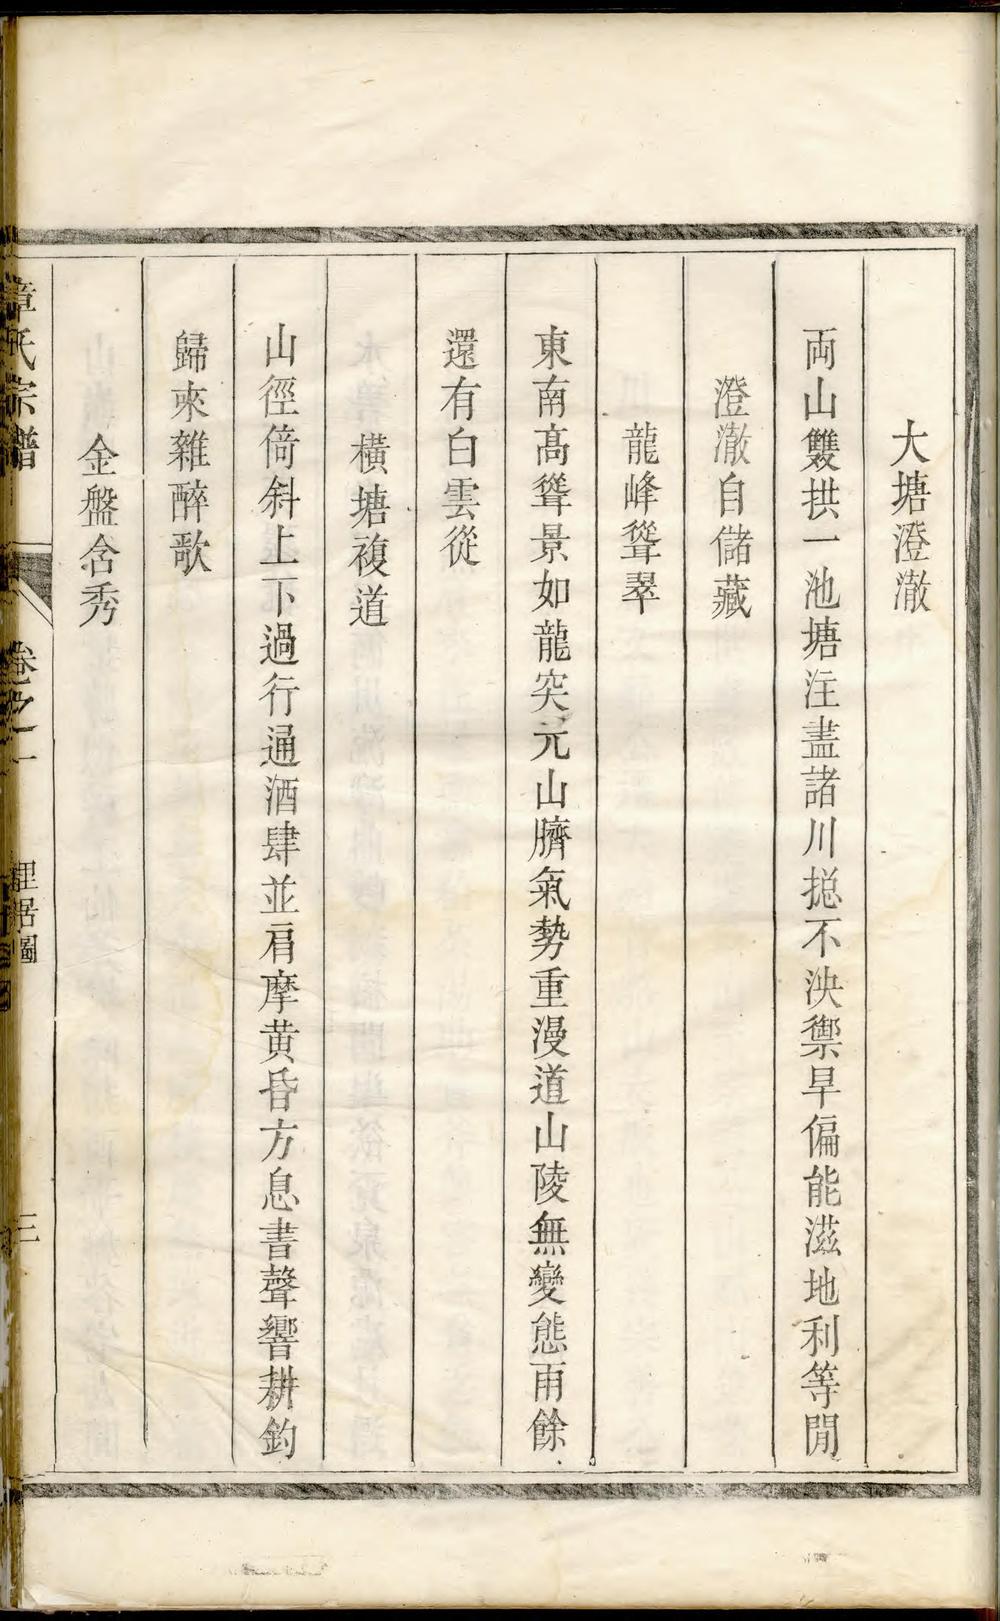 大塘澄澈
両山雙拱一池塘注盡諸川摠不泱禦旱偏能滋地利等閒
澄澈自儲藏
龍峰聳翠
東南高聳景如龍突元山臍氣勢重漫道山陵無變態雨餘
還有白雲從
橫塘複道
山徑倚斜上下過行通酒肆並肩摩黄昏方息書聲響耕釣
歸來雜醉歌
金盤含秀
章氏宗譜
卷之一
里居圖
三